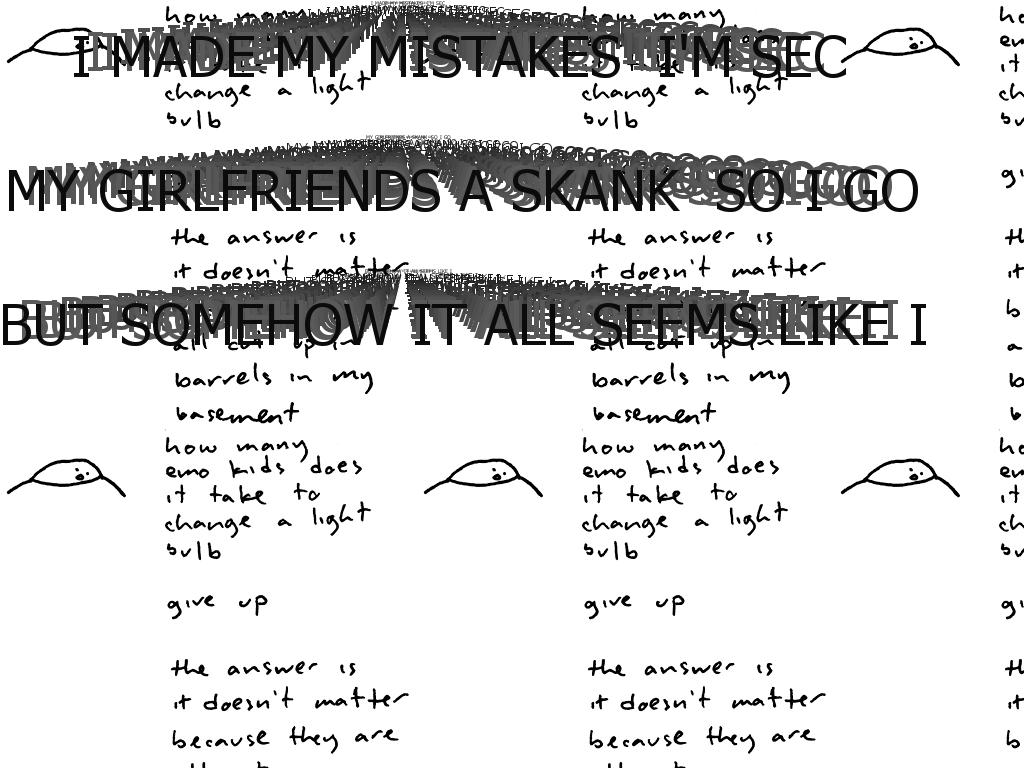 I MADE MY MISTAKES I'M SEC
MY GIRLFRIENDS A SKANK SO I GO
BUT SOMEHOW IT ALL SEEMS LIKE I
how many
change a light
bulb
the answer is
it doesn't matter
all cut up in
barrels in my
basement
how many
emo kids does
it take to
change a light
bulb
give up
the answer is
it doesn't matter
because they are
how many
change a light
bulb
the answer is
it doesn't matter
all cut up in
barrels in my
basement
how many
emo kids does
it take to
change a light
bulb
give up
the answer is
it doesn't matter
because they are